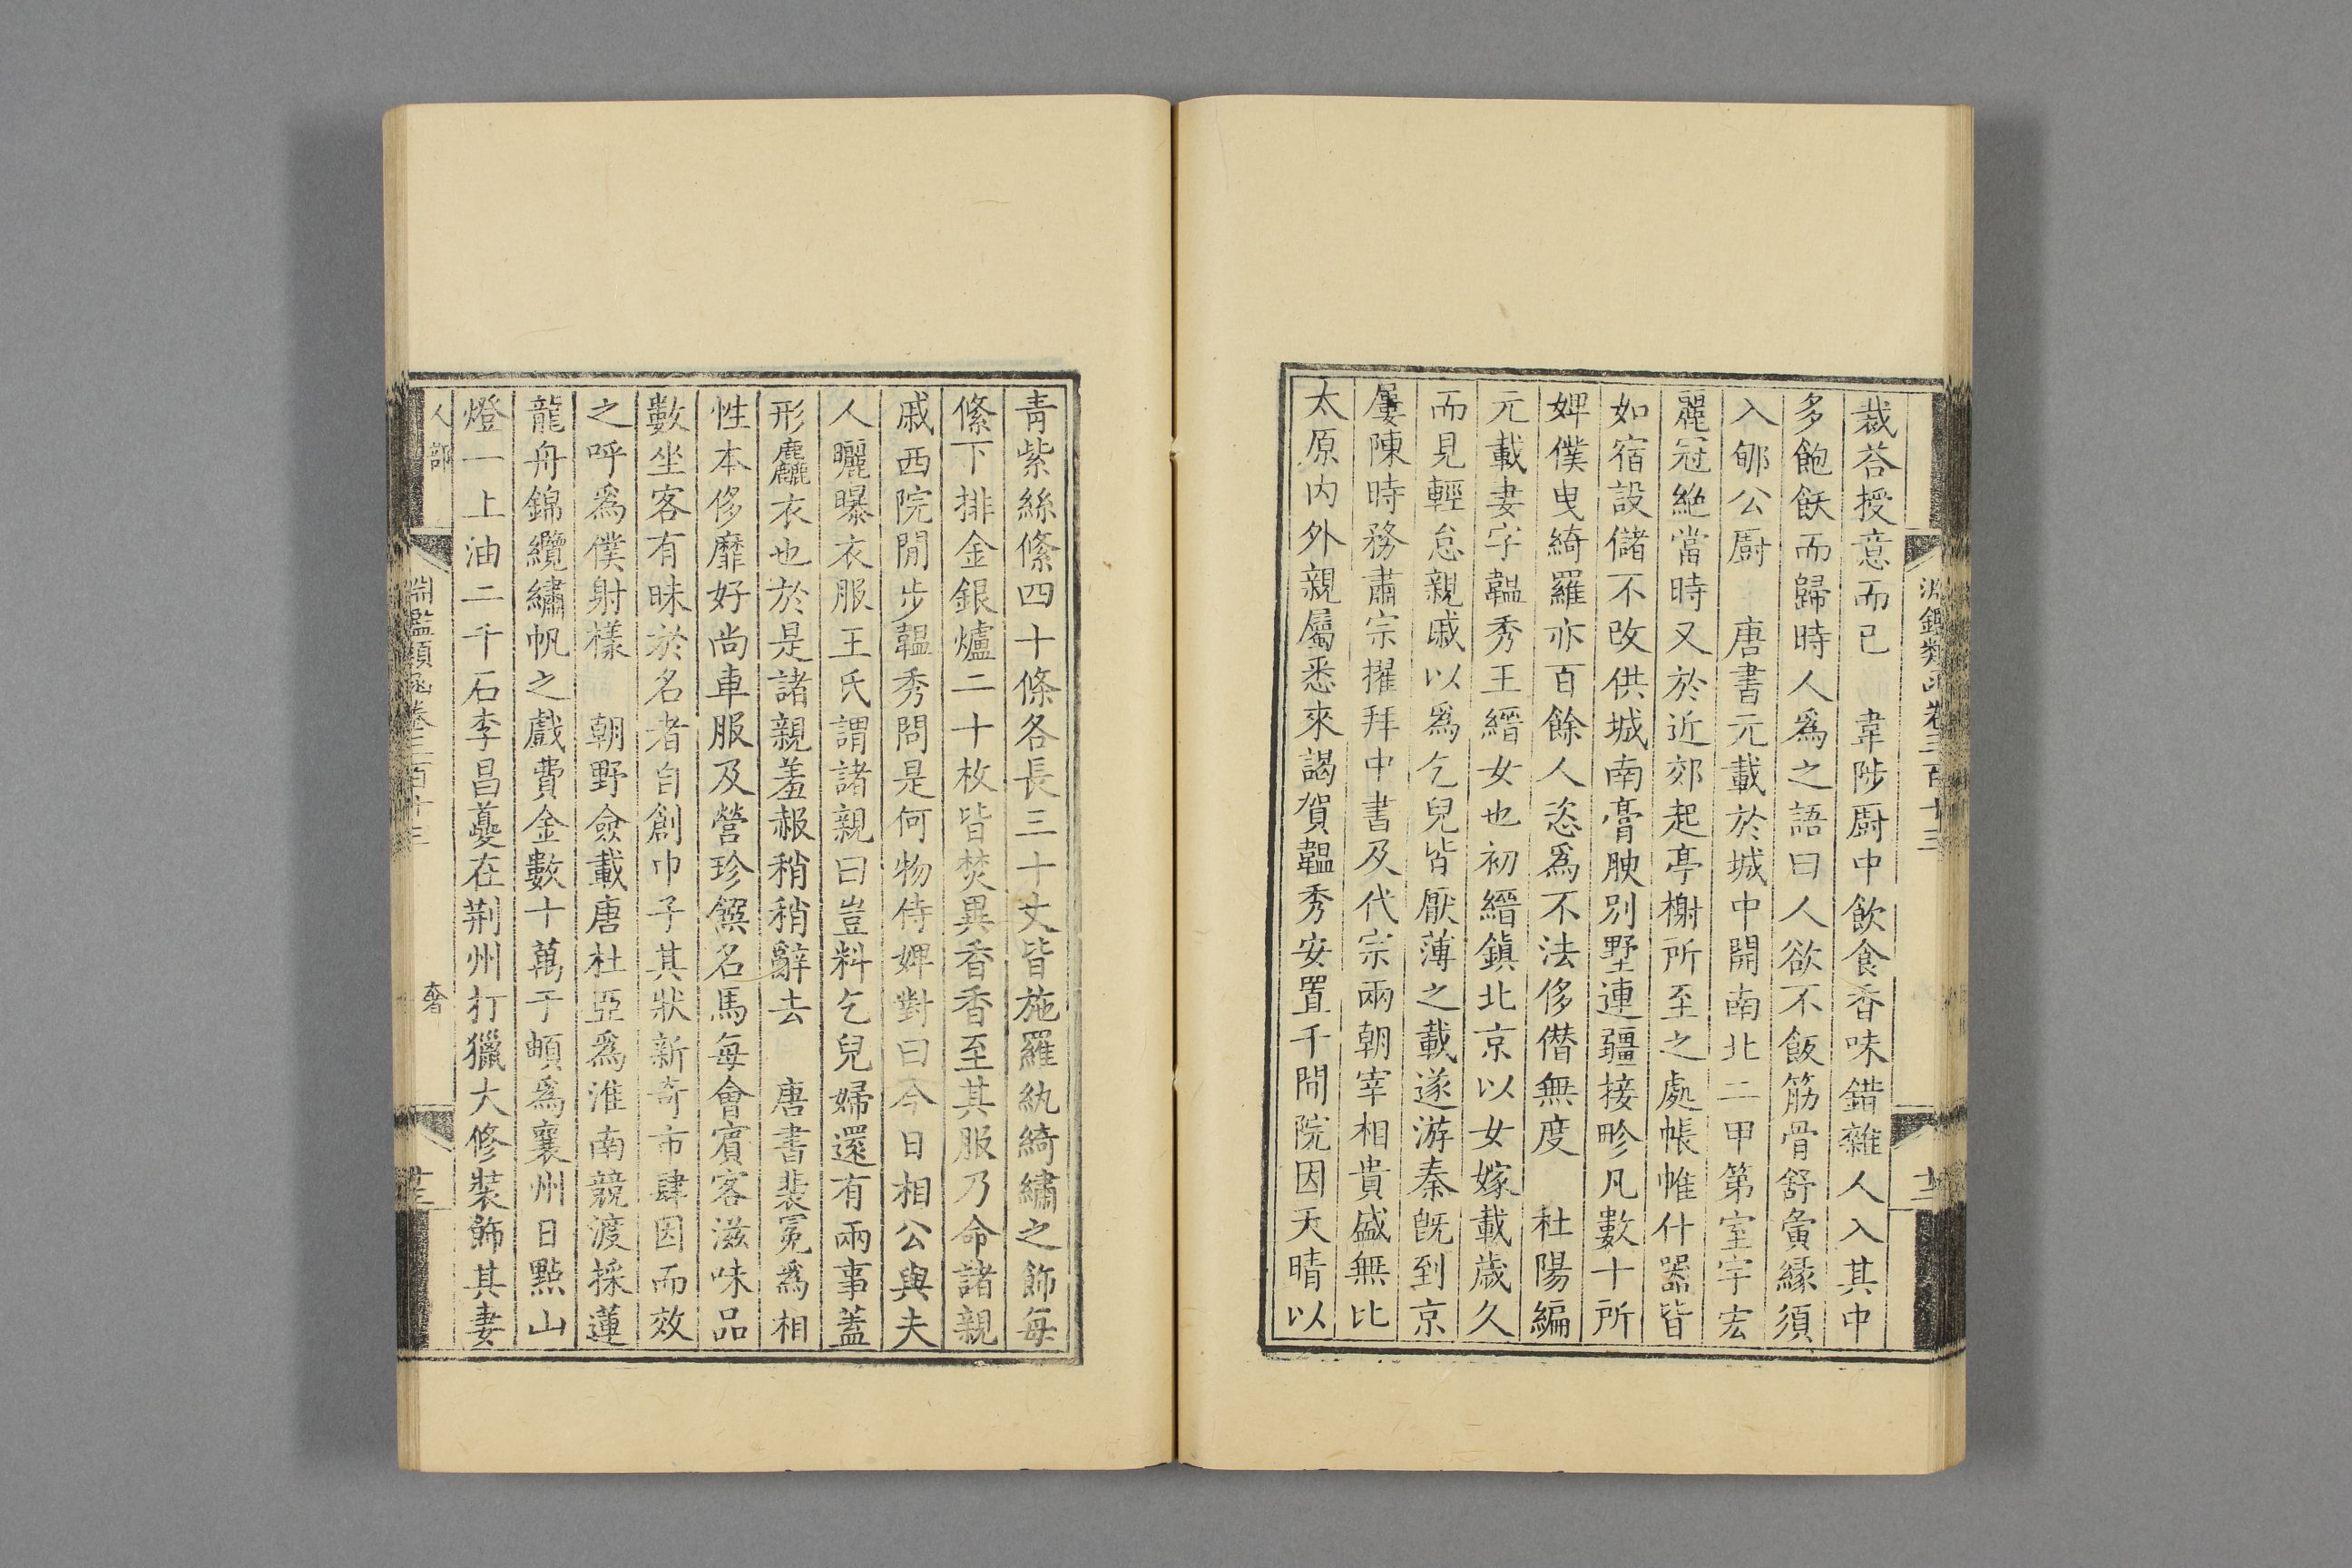 裁荅授意而已 韋陟廚中飲食香味錯雜人入其中
多飽飫而歸時人爲之語曰人欲不飯筋骨舒夤縁須
入郇公廚 唐書元載於城中開南北二甲第室宇宏
麗冠絶當時又於近郊起亭榭所至之處帳帷什器皆
如宿設儲不改供城南膏腴別墅連疆接畛凡數十所
婢僕曳綺羅亦百餘人恣爲不法侈僭無度 杜陽編
元載妻字韞秀王縉女也初縉鎮北京以女嫁載歲久
而見輕怠親戚以爲乞兒皆厭薄之載遂游秦旣到京
屢陳時務肅宗擢拜中書及代宗兩朝宰相貴盛無比
太原内外親屬悉來謁賀韞秀安置千閒院因天晴以
青紫絲絛四十條各長三十丈皆施羅紈綺繡之飾每
絛下排金銀爐二十枚皆焚異香香至其服乃命諸親
戚西院閒步韞秀問是何物侍婢對曰今日相公與夫
人曬曝衣服王氏謂諸親曰豈料乞兒婦還有兩事蓋
形麤衣也於是諸親羞赧稍稍辭去 唐書裴冕爲相
性本侈靡好尚車服及營珍饌名馬每會賓客滋味品
數坐客有昧於名者自創巾子其狀新奇市肆因而效
之呼爲僕射樣 朝野僉載唐杜亞爲淮南競渡採蓮
龍舟錦纜繡帆之戲費金數十萬于頔爲襄州日點山
燈一上油二千石李昌夔在荆州打獵大修裝飾其妻
人部
淵鑑類函卷三百十三
奢